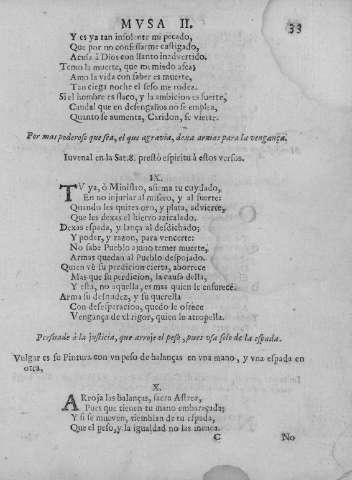 MVSA II.
33
Y es ya tan insolente mi pecado,
Que por no confessarme castigado,
Acusa â Dios con llanto inadvertido.
Temo la muerte, que mi miedo afea;
Amo la vida con saber es muerte,
Tan ciega noche el seso me rodea.
Si el hombre es flaco, y la ambicion es fuerte,
Caudal que en desengaños no se emplea,
Quanto se aumenta, Caridon, se vierte.
Por mas poderoso que sea, el que agravia, dexa armas para la vengança.
Iuvenal en la Sat. 8. prestò espiritu â estos versos.
IX.
TV ya, ò Ministro, afirma tu cuydado,
En no injuriar al misero, y al fuerte:
Quando les quites oro, y plata, advierte,
Que les dexas el hierro azicalado.
Dexas espada, y lança al desdichado;
Y poder, y razon, para vencerte:
No sabe Pueblo ayuno temer muerte,
Armas quedan al Pueblo despojado.
Quien vè su perdicion cierta, aborrece
Mas que su perdicion, la causa della,
Y esta, no aquella, es mas quien le enfurece.
Arma su desnudez, y su querella
Con desesperacion, quando le ofrece
Vengança de el rigor, quien le atropella.
Persuade à la justicia, que arroje el peso, pues usa solo de la espada.
Vulgar es su Pintura con vn peso de balanças en vna mano, y vna espada en
otra,
X.
ARroja las balanças, sacra Astrea,
Pues que tienen tu mano embaraçada;
Y si se mueven, tiemblan de tu espada,
Que el peso, y la igualdad no las menea.
C
No